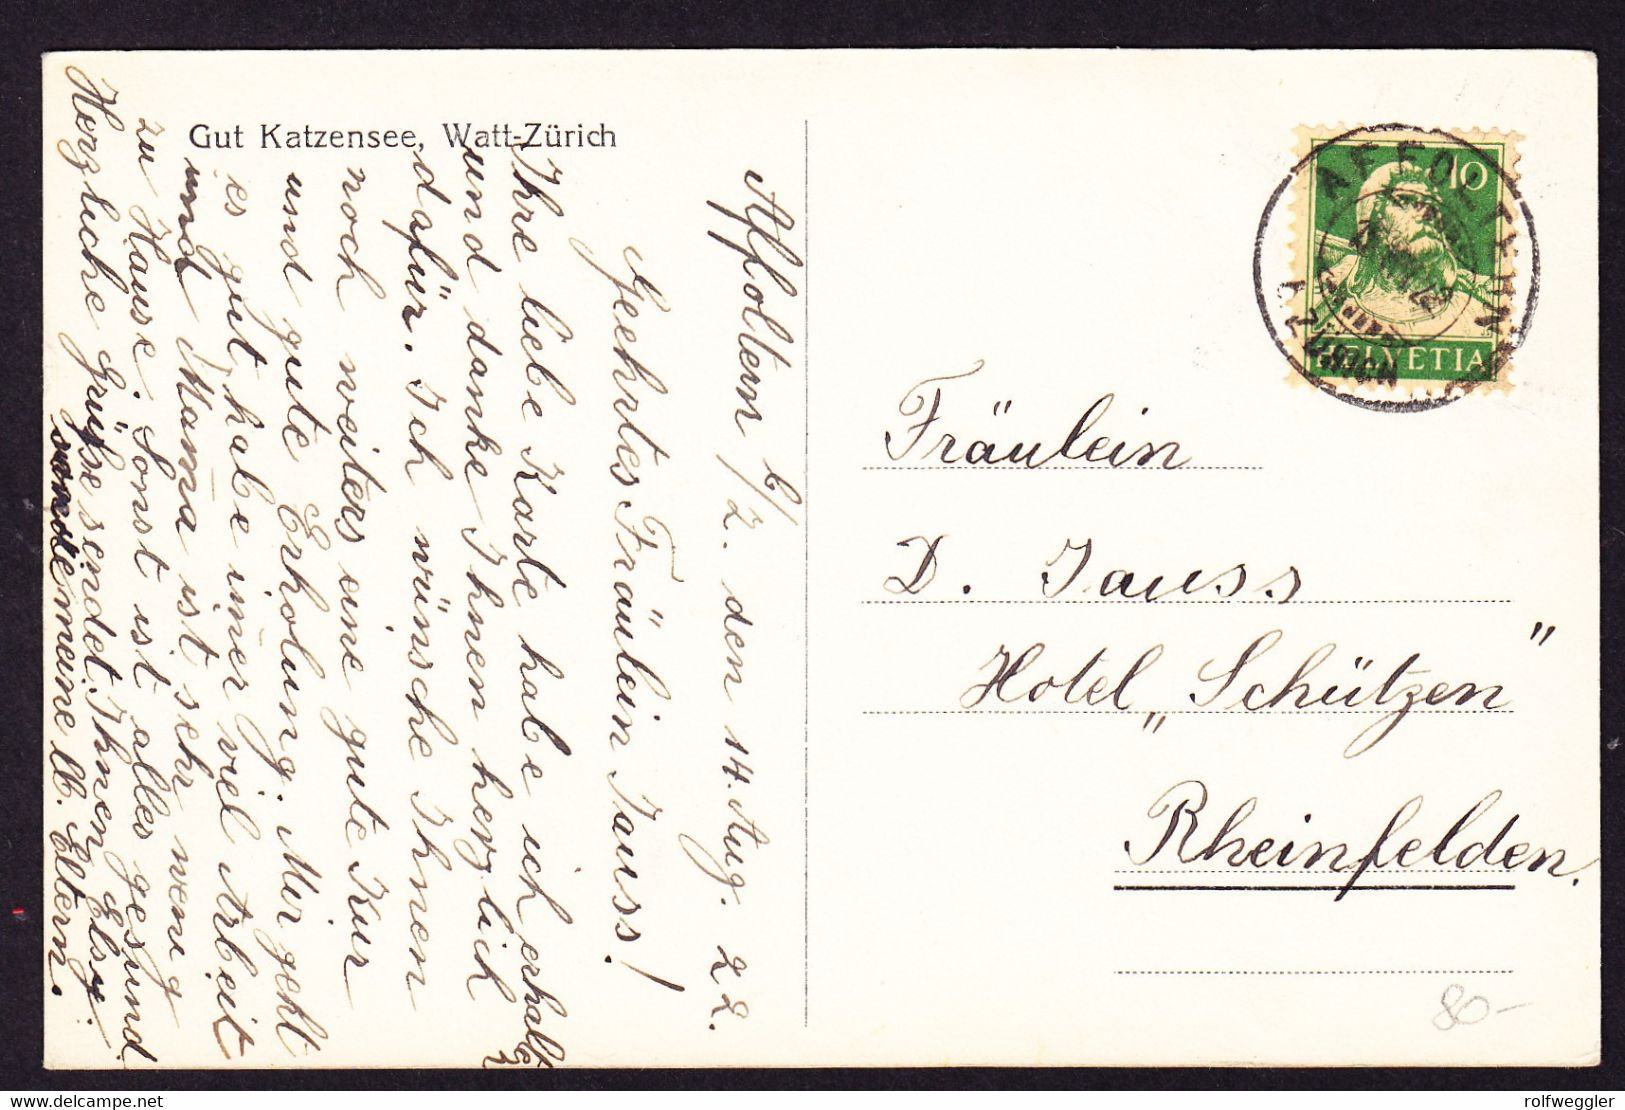 Gut Katzensee, Watt-Zürich
Affoltern b/Z. den 14. Aug. 22.
Geehrtes Fräulein Jauss!
Ihre liebe Karte habe ich erhalten
und danke Ihnen herzlich
dafür. Ich wünsche Ihnen
noch weiters eine gute Kur
und gute Erholung. Mir geht
es gut, habe im̄er viel Arbeit
und Mama ist sehr wenig
zu Hause. Sonst ist alles gesund
Herzliche Grüsse sendet Ihnen Elsy.
sowie meine lb. Eltern.
10
HELVETIA
AFFOLTERN
b. ZÜRICH
Fräulein
D. Jauss
Hotel „Schützen"
Rheinfelden.
80-
www.delcampe.net
rolfweggler